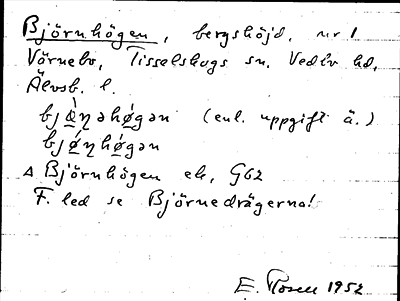 Björnhögen, bergshöjd, nr 1
Värnebo, Tisselskogs sn, Vedbo hd,
Älvsb. l.
bjø̀ṇəhǿgən (enl. uppgift ä.)
bjǿṇhǿgən
Δ Björnhögen ek, G62
F. led se Björnedrägerna!
E. Rosell 1952